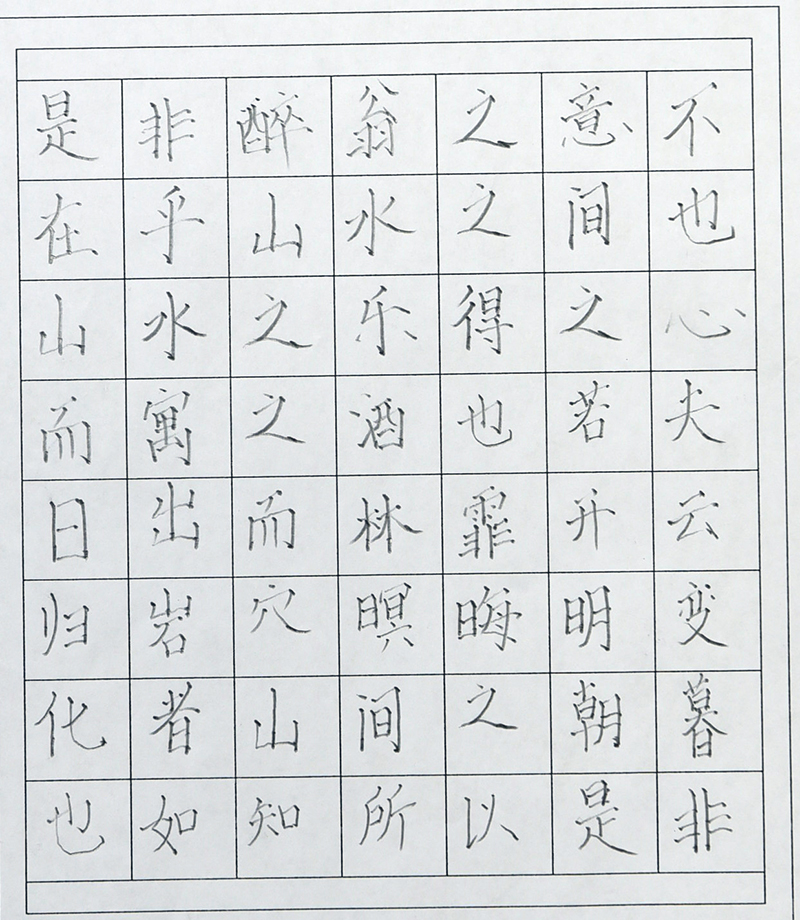 是非醉翁之意不
在乎山水之间也
山水之乐得之心
而寓之酒也若夫
日出而林霏开云
归岩穴暝晦明变
化者山间之朝暮
也如知所以是非